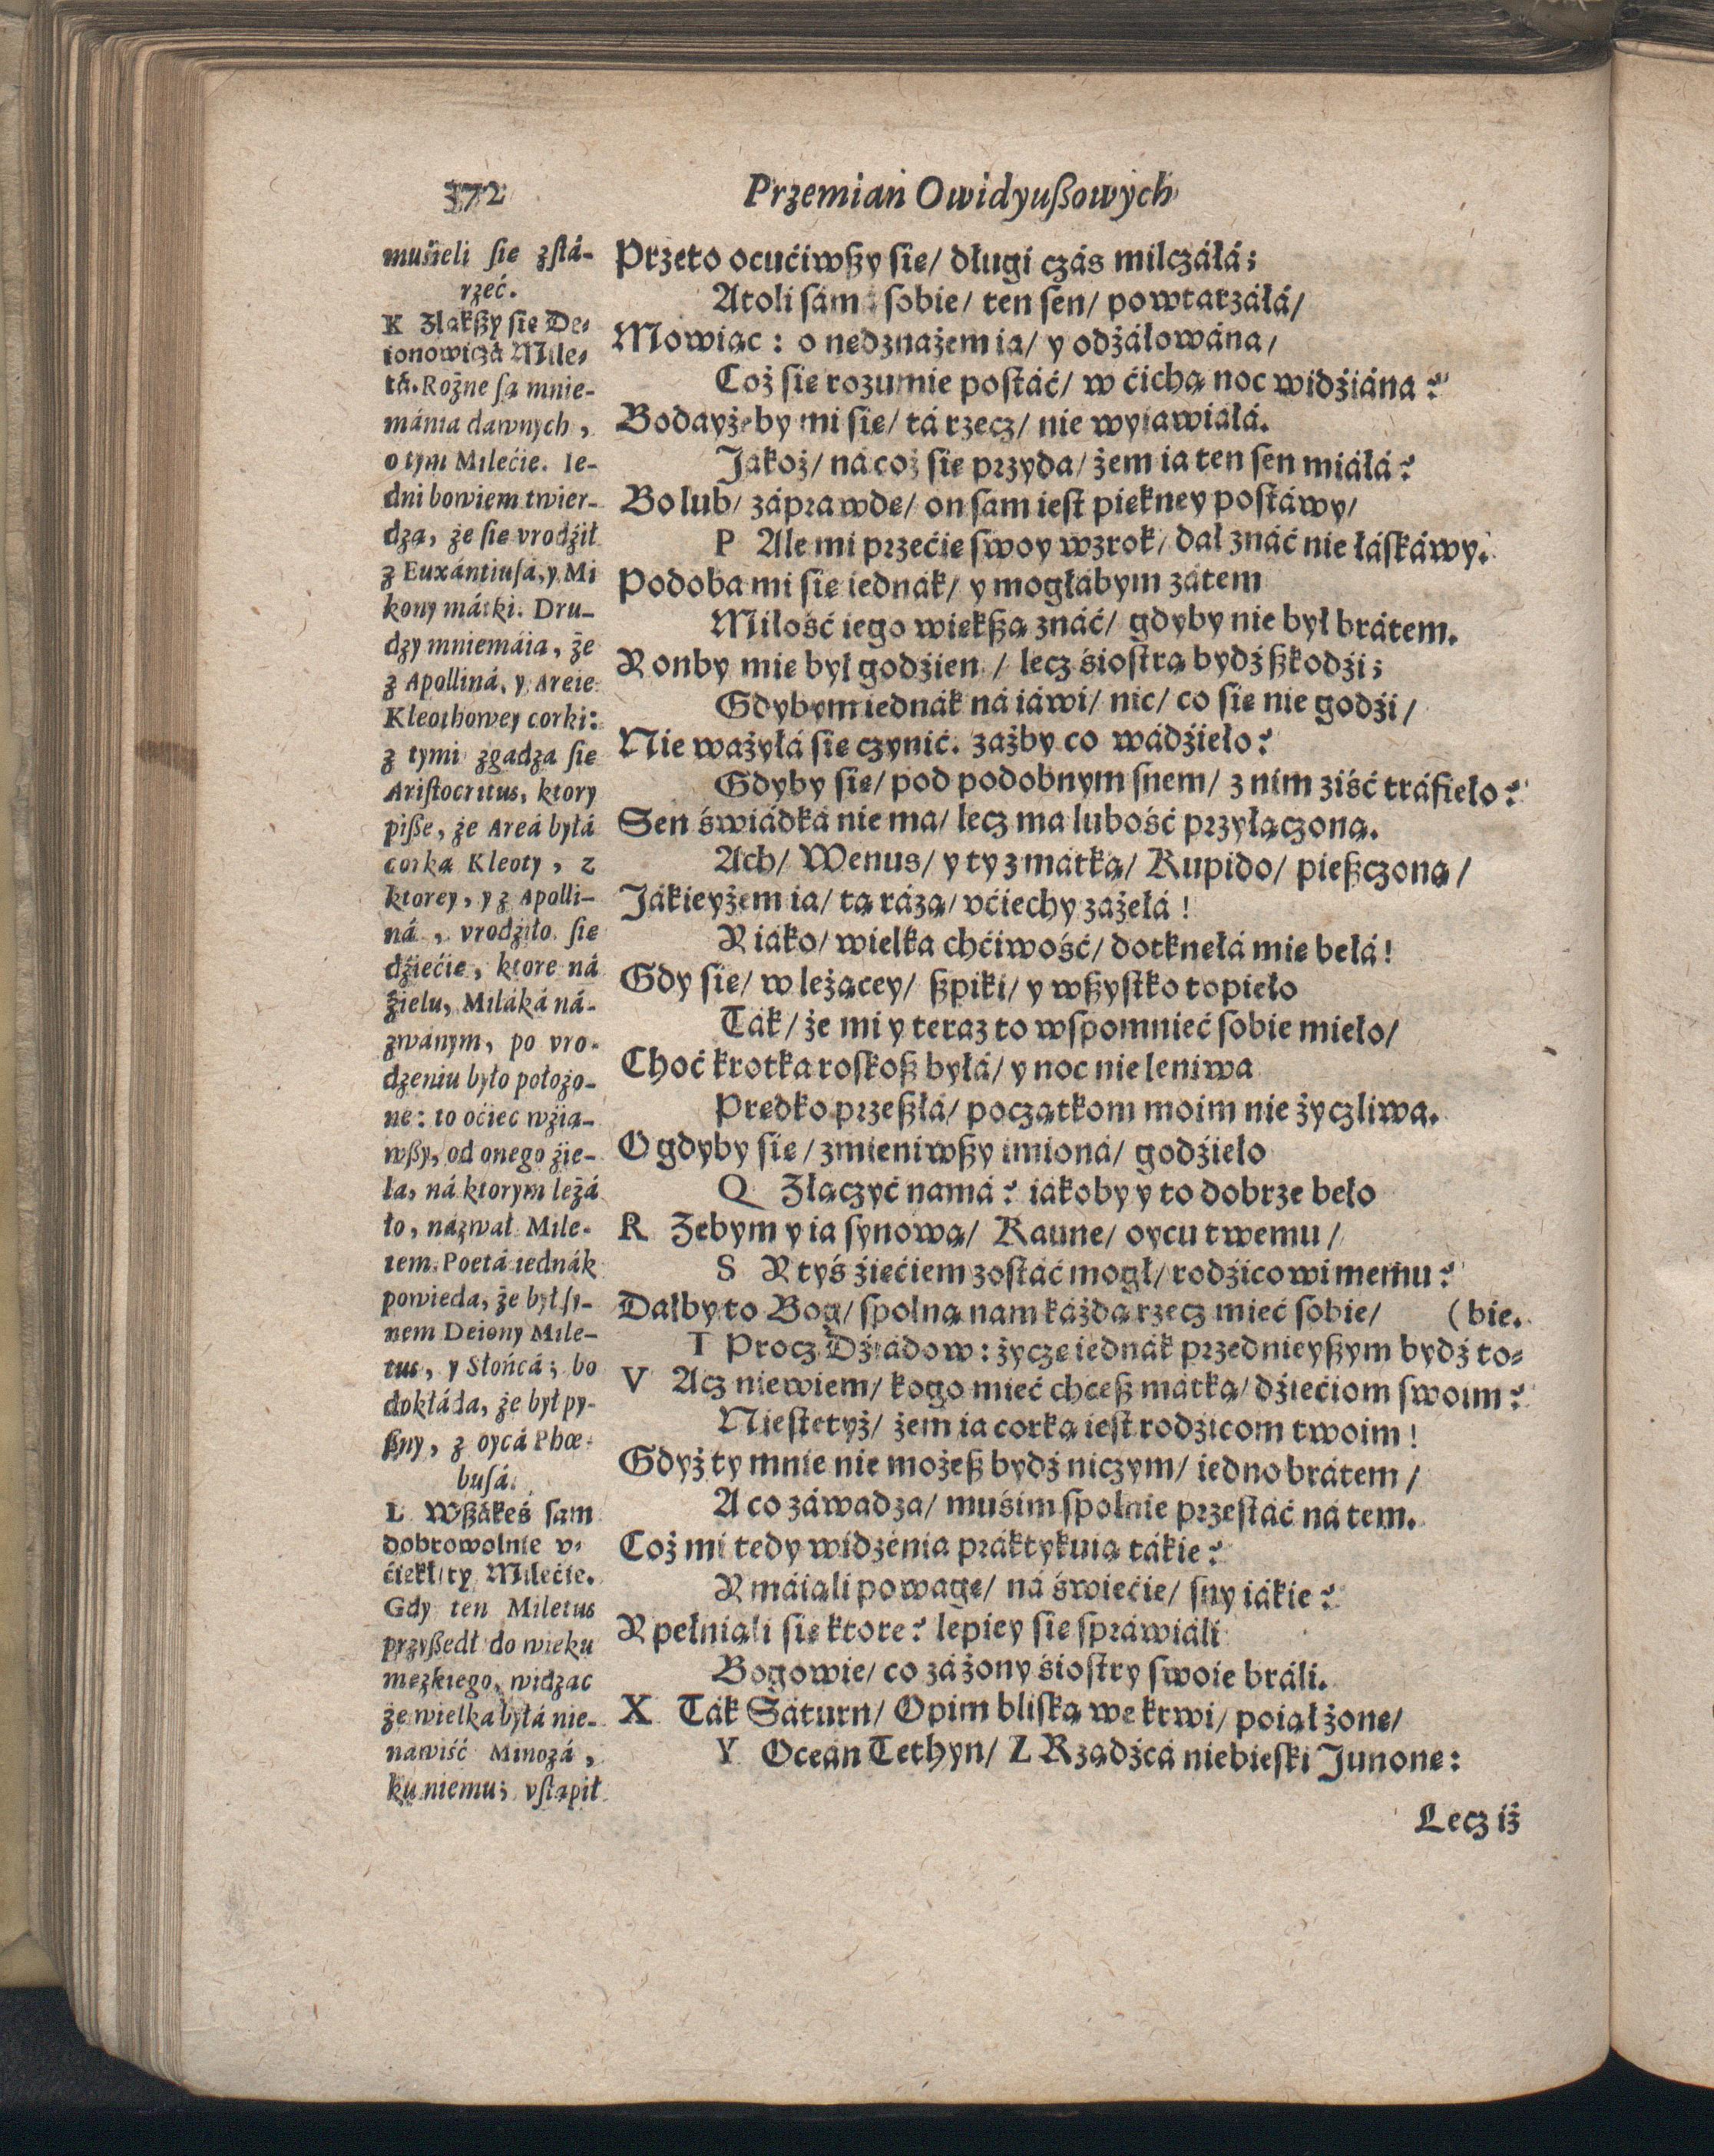 372
Przemian Owidyußowych
muśieli ſie zſtá-
rzeć.
K Zlákßy ſie De-
ionowiczá Mile-
tá. Rożne ſą mnie-
mánia dawnych,
o tym Milećie. Ie-
dni bowiem twier-
dzą, że ſie vrodźił
z Euxántiuſá, y Mi
kony mátki. Dru-
dzy mniemáią, że
z Apolliná, y Areie
Kleothowey corki:
z tymi zgadza ſie
Ariſtocritus, ktory
piße, że Areá byłá
corką Kleoty, z
ktorey, y z Apolli-
ná, vrodźiło ſie
dźiećie, ktore ná
źielu, Miláká ná-
zwánym, po vro-
dzeniu było położo-
ne: to oćiec wźią-
wßy, od onego źie-
ła, ná ktorym leżá
ło, názwał Mile-
tem. Poetá iednák
powieda, że był ſy-
nem Deiony Mile-
tus, y Słońcá; bo
dokłáda, że był py-
ßny, z oycá Phœ-
buſá.
L Wßákeś ſam
dobrowolnie v-
ćiekł ty Milećie.
Gdy ten Miletus
przyßedł do wieku
męzkiego, widząc
że wielka byłá nie-
nawiść Minozá,
ku niemu; vſtąpił
Przeto ocućiwßy ſie/ długi czás milczáłá;
Atoli ſámá sobie/ ten ſen/ powtarzáłá/
Mowiąc: o nędznażem ia/ y odżáłowána/
Coż ſie rozumie poſtáć/ w ćichą noc widźiána?
Bodayżeby mi ſie/ tá rzecz/ nie wyiawiáłá.
Jákoż/ ná coż ſie przyda/ żem ia ten ſen miáłá?
Bo lub/ záprawdę/ on ſam ieſt piękney poſtáwy/
P Ale mi przećię ſwoy wzrok/ dał znáć nie łáſkáwy.
Podoba mi ſie iednák/ y mogłábym zátem
Miłość iego więkßą znáć/ gdyby nie był brátem.
Y onby mię był godźien/ lecz śioſtrą bydź ßkodźi;
Gdybym iednák ná iáwi/ nic/ co ſie nie godźi/
Nie ważyłá ſie czynić. zażby co wádźieło?
Gdyby ſie/ pod podobnym ſnem/ z nim ziść tráfieło?
Sen świádká nie ma/ lecz ma lubość przyłączoną.
Ach/ Wenus/ y ty z mátką/ Kupido/ pießczoną/
Jákieyżem ia/ tą rázą/ vćiechy záżełá!
Y iáko/ wielka chćiwość/ dotknełá mię bełá!
Gdy ſie/ w leżącey/ ßpiki/ y wßyſtko topieło
Ták/ że mi y teraz to wſpomnieć ſobie mieło/
Choć krotka roſkoß byłá/ y noc nie leniwa
Prędko przeßłá/ początkom moim nie życzliwa.
O gdyby ſie/ zmieniwßy imioná/ godźieło
Q Złączyć namá? iákoby y to dobrze beło
R Żebym y ia ſynową/ Kaune/ oycu twemu/
S Y tyś źięćiem zoſtáć mogł/ rodźicowi memu?
Dałby to Bog/ ſpolną nam káżdą rzecz mieć ſobie/
T Procz Dźiádow: życzę iednák przednieyßym bydź to- (bie.
V Acz niewiem/ kogo mieć chceß mátką/ dźiećiom ſwoim?
Nieſtetyż/ żem ia corką ieſt rodźicom twoim!
Gdyż ty mnie nie możeß bydź niczym/ iedno brátem/
A co záwadza/ muśim ſpolnie przeſtáć ná tem.
Coż mi tedy widzenia práktykuią tákie?
Y máiąli powagę/ ná świećie/ ſny iákie?
Y pełniąli ſie ktore? lepiey ſie ſpráwiáli
Bogowie/ co zá żony śioſtry ſwoie bráli.
X Ták Sáturn/ Opim bliſką we krwi/ poiął żonę/
Y Oceán Tethyn/ Z Rządźcá niebieſki Junonę:
Lecz iż